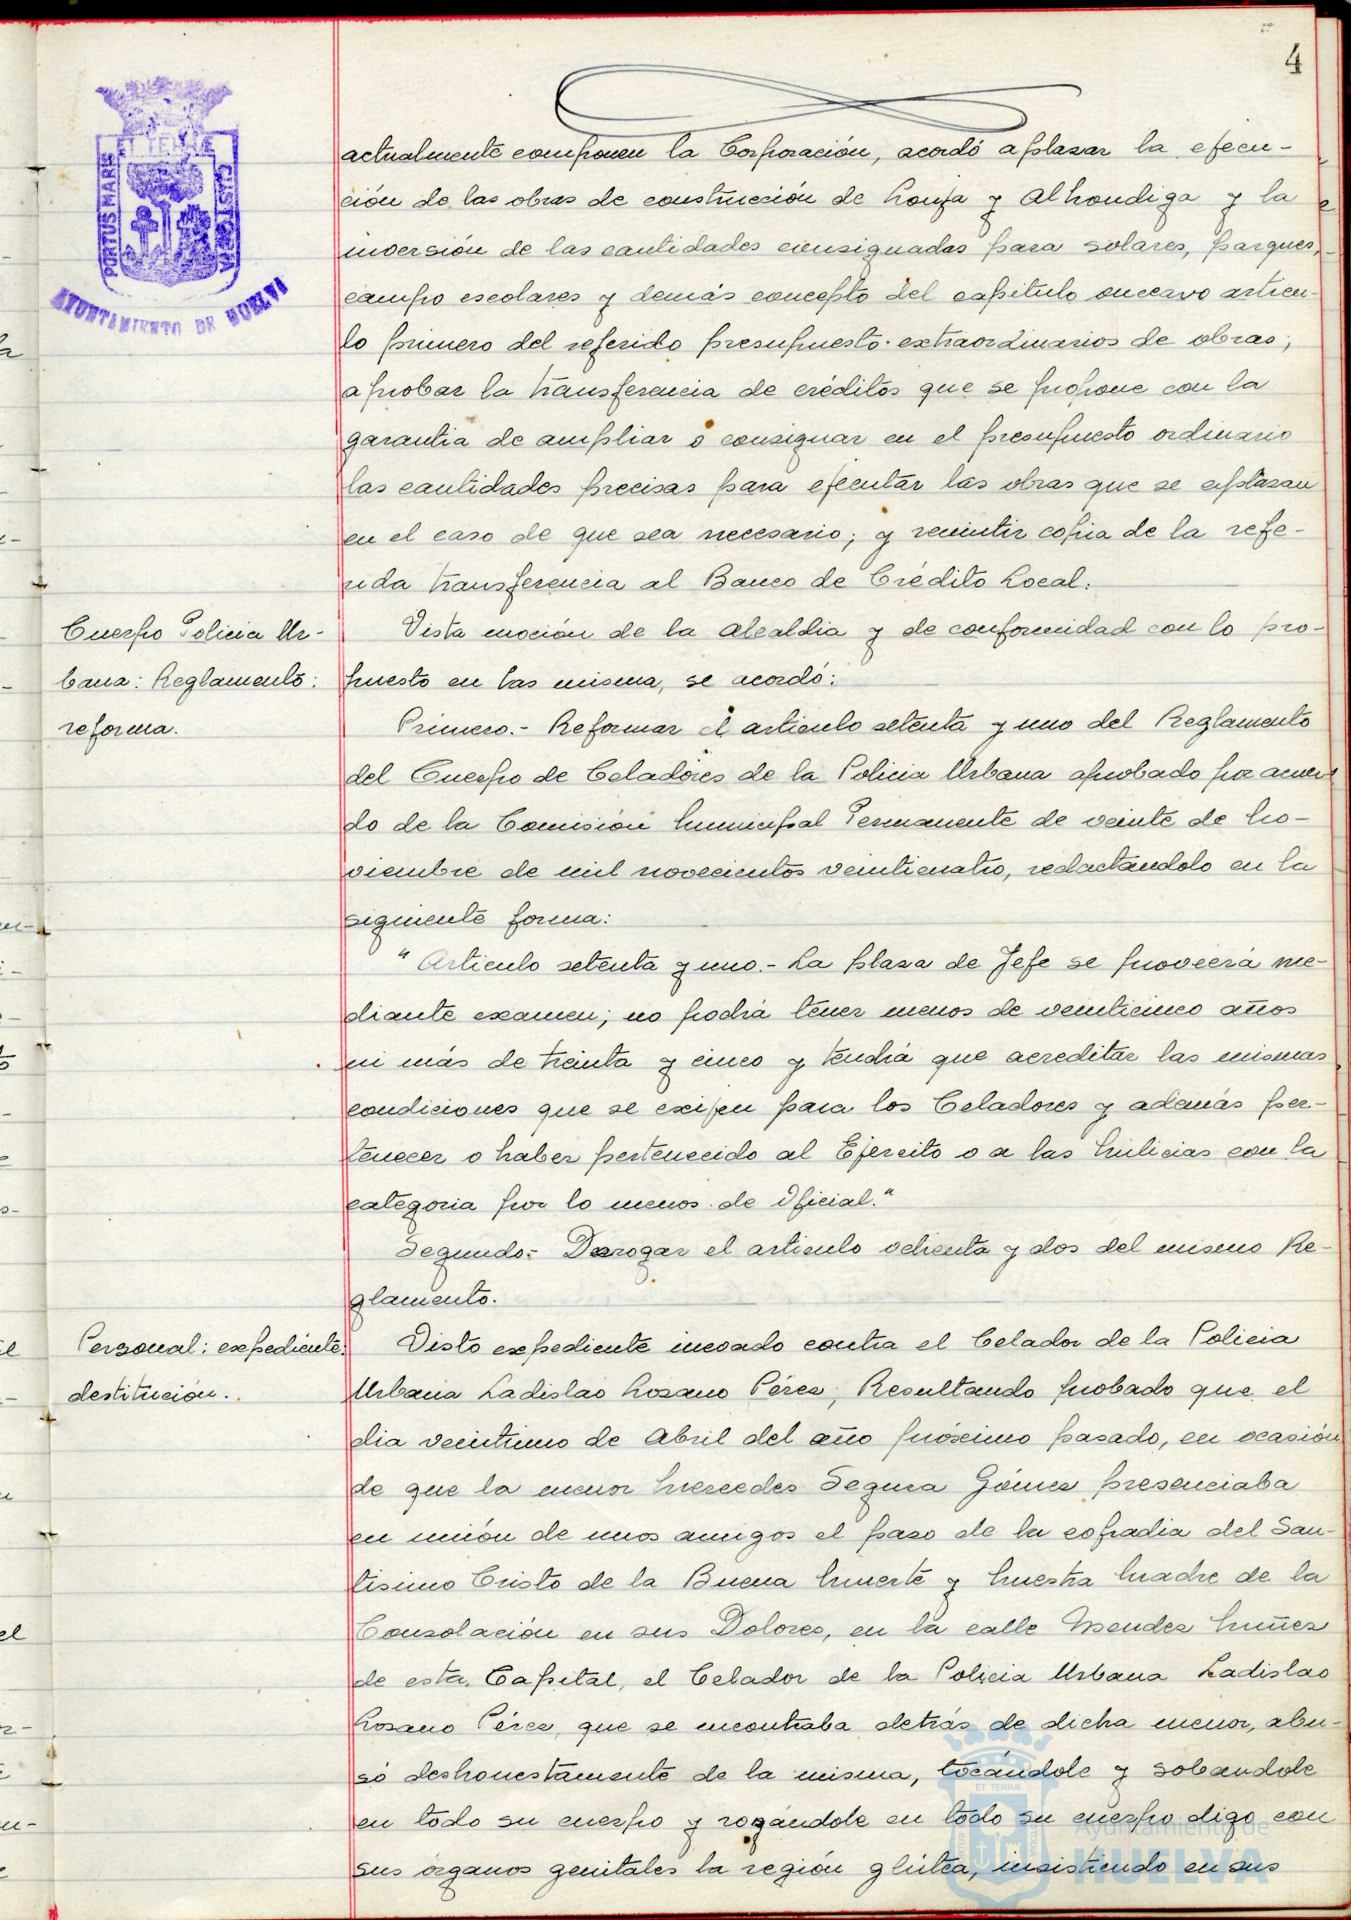 4
ET TERRÆ
PORTUS MARIS
CUSTODIA
AYUNTAMIENTO DE HUELVA
actualmente componen la Corporación, acordó aplazar la ejecu-
ción de las obras de construcción de Lonja y Alhondiga y la
inversión de las cantidades consignadas para solares, parques,
campo escolares y demás concepto del capitulo onceavo articu-
lo primero del referido presupuesto extraordinarios de obras;
aprobar la transferencia de créditos que se propone con la
garantia de ampliar o consignar en el presupuesto ordinario
las cantidades precisas para ejecutar las obras que se aplazan
en el caso de que sea necesario; y remitir copia de la refe-
rida transferencia al Banco de Crédito Local.
Cuerpo Policia Ur-
bana: Reglamento:
reforma.
Vista moción de la Alcaldia y de conformidad con lo pro-
puesto en las misma, se acordó:
Primero.- Reformar el articulo setenta y uno del Reglamento
del Cuerpo de Celadores de la Policia Urbana aprobado por acuer-
do de la Comisión Municipal Permanente de veinte de No-
viembre de mil novecientos veinticuatro, redactandolo en la
siguiente forma:
"Articulo setenta y uno.- La plaza de Jefe se proveerá me-
diante examen; no podrá tener menos de veinticinco años
ni más de treinta y cinco y tendrá que acreditar las mismas
condiciones que se exijen para los Celadores y además per-
tenecer o haber pertenecido al Ejercito o a las Milicias con la
categoria por lo menos de Oficial."
Segundo.- Derogar el articulo ochenta y dos del mismo Re-
glamento.
Personal: expediente:
destitución.
Visto expediente incoado contra el Celador de la Policia
Urbana Ladislao Lozano Pérez; Resultando probado que el
dia veintiuno de Abril del año próximo pasado, en ocasión
de que la menor Mercedes Segura Gómez presenciaba
en unión de unos amigos el paso de la cofradia del San-
tisimo Cristo de la Buena Muerte y Nuestra Madre de la
Consolación en sus Dolores, en la calle Mendez Nuñez
de esta Capital, el Celador de la Policia Urbana Ladislao
Lozano Pérez, que se encontraba detrás de dicha menor, abu-
só deshonestamente de la misma, tocándole y sobandole
en todo su cuerpo y rozándole en todo su cuerpo digo con
sus organos genitales la región glútea, insistiendo en sus
Ayuntamiento de
HUELVA